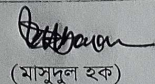 (মাসুদুল হক)